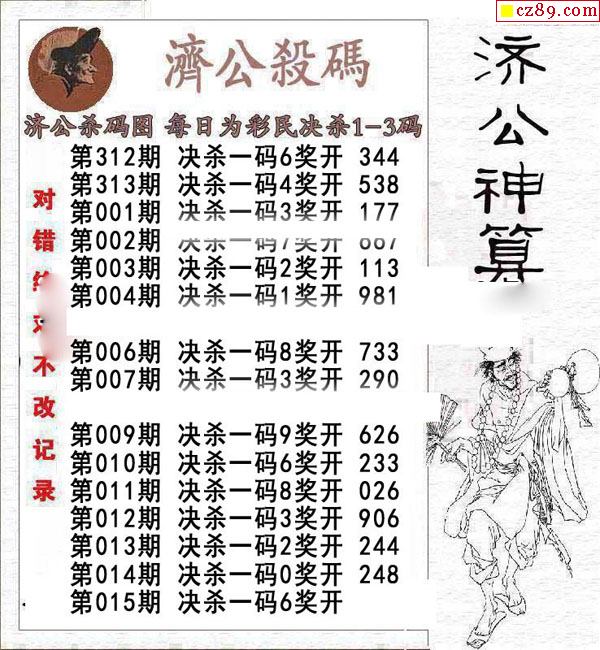 cz89.com
濟公殺碼
济公杀码图 每日为彩民决杀1-3码
第312期 决杀一码6奖开 344
第313期 决杀一码4奖开 538
第001期 决杀一码3奖开 177
第002期 决杀一码7奖开
第003期 决杀一码2奖开 113
第004期 决杀一码1奖开 981
第006期 决杀一码8奖开 733
第007期 决杀一码3奖开 290
第009期 决杀一码9奖开 626
第010期 决杀一码6奖开 233
第011期 决杀一码8奖开 026
第012期 决杀一码3奖开 906
第013期 决杀一码2奖开 244
第014期 决杀一码0奖开 248
第015期 决杀一码6奖开
对错 不改记录
济公神算